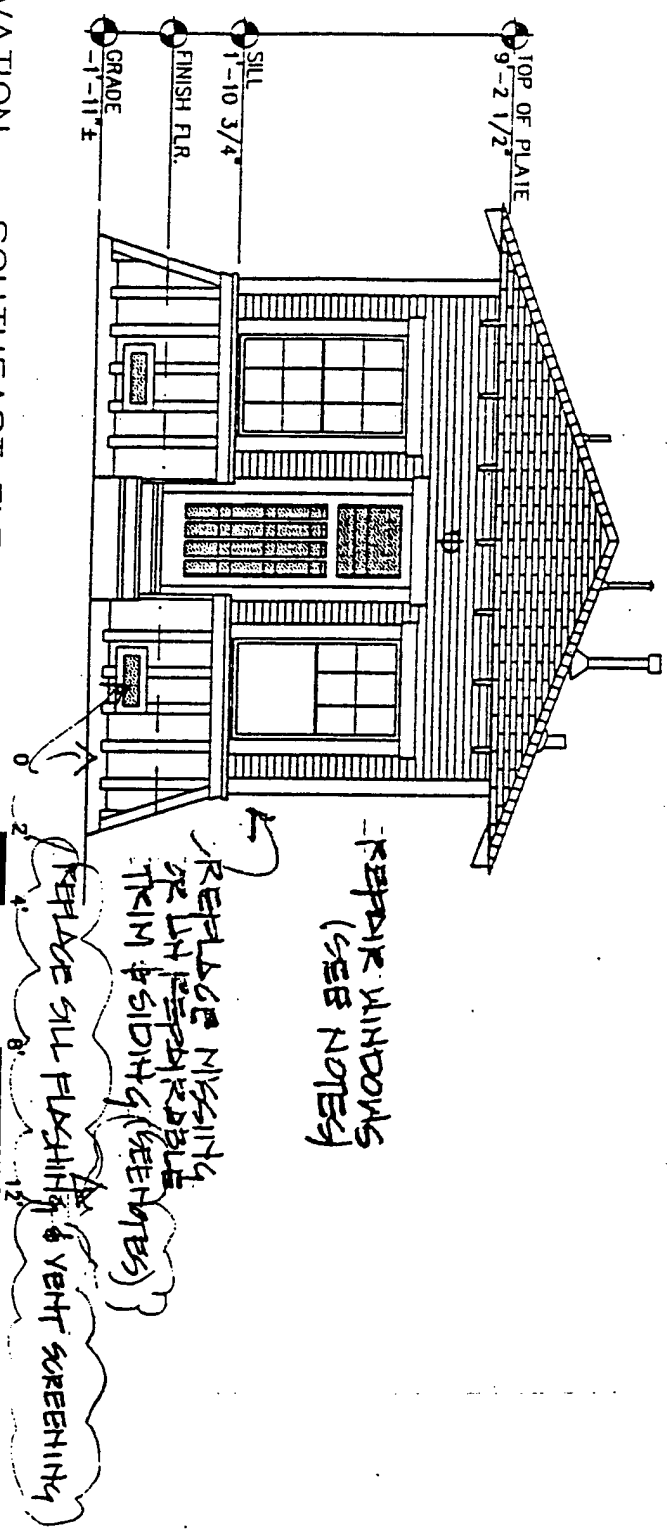 TOP OF PLATE
9'-2 1/2"
SILL
1'-10 3/4"
FINISH FLR.
GRADE
-1'-11"±
-REPAIR WINDOWS
(SEE NOTES)
REPLACE MISSING
OR UNREPAIRABLE
TRIM & SIDING (SEE NOTES)
REPLACE SILL FLASHING & VENT SCREENING
0 2' 4' 8' 12'